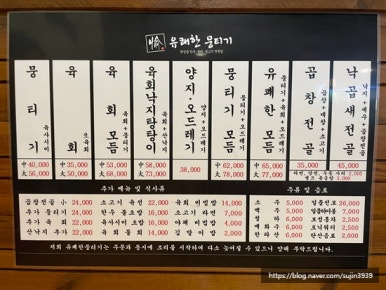 유쾌한 뭉티기
뭉티기
육사시미
中 40,000
大 56,000
육회
生육회
中 35,000
大 50,000
육회모듬
육회+뭉티기
中 53,000
大 68,000
육회낙지탕탕이
육회+산낙지
中 58,000
大 73,000
양지·오드레기
양지+오드레기
38,000
뭉티기모듬
뭉티기+오드레기
中 62,000
大 78,000
유쾌한모듬
뭉티기+육회+오드레기
中 65,000
大 77,000
곱창전골
35,000
낙곱새전골
낙지+새우+곱창전골
45,000
추가 메뉴 및 식사류
곱창전골 小 24,000
추가 뭉티기 22,000
추가 육회 22,000
산낙지 추가 22,000
소고기 육전 22,000
한우 불초밥 16,000
육사시미 초밥 16,000
육회 물회 14,000
육회 비빔밥 14,000
소고기 라면 7,000
야채 비빔밥 4,000
김말이밥 3,000
주류 및 음료
소주 5,000
맥주 5,000
청하 6,000
백세주 6,000
한라산 6,000
26,000
7,000
3,000
2,000
2,000
저희 유쾌한뭉티기는 주문과 동시에 조리를 시작하여 다소 늦어질 수 있으니 양해 부탁드립니다.
https://blog.naver.com/sujin3939